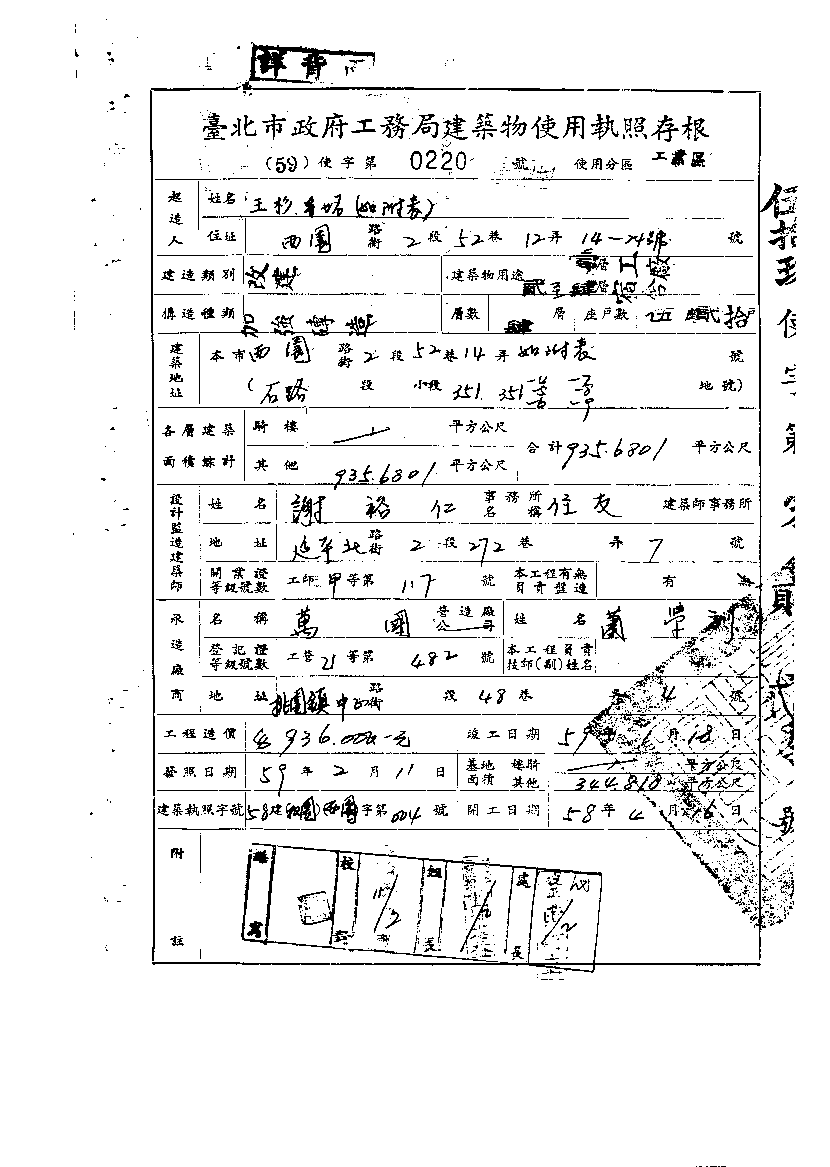 詳背面
臺北市政府工務局建築物使用執照存根
(59) 使字第 0220 號 使用分區 工業區
起造人 姓名 王杉 (如附表)
住址 西園 路街 2 段 52 巷 12 弄 14-24號 號
建造類別 改建 建築物用途 壹層工廠
貳至肆層宿舍
構造種類 加強磚造 層數 肆 層 座戶數 貳拾戶
建築地址 本市 西園 路街 2 段 52 巷 14 弄 如附表 號
(石路 段 小段 351. 351 地號)
各層建築面積總計 騎樓 平方公尺 合計 935.6801 平方公尺
其他 935.6801 平方公尺
設計監造建築師 姓名 謝裕仁 事務所名稱 住友 建築師事務所
地址 延平北 路街 2 段 272 巷 弄 7 號
開業證等級號數 工師 甲 等第 117 號 本工程有無負責監造 有 無
承造廠商 名稱 萬國 營造廠公司 姓名 蘭學
登記證等級號數 工營 21 等第 482 號 本工程負責技師(副)姓名
地址 桃園鎮中正 路街 段 48 巷 弄 4 號
工程造價 936.000-元 竣工日期 59 年 1 月 18 日
發照日期 59 年 2 月 11 日 基地面積 騎樓 平方公尺
其他 344.818 平方公尺
建築執照字號 58 建 西園 字第 004 號 開工日期 58 年 4 月 16 日
附註
繕寫 校對 組長 處長
伍拾玖使字第 零貳貳零號